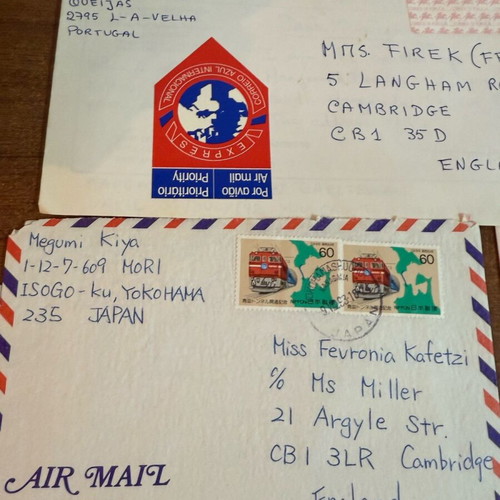 QUEIJAS
2795 L-A-VELHA
PORTUGAL
CORREIO AZUL INTERNACIONAL
EXPRES
Por avião Prioritário
Air mail Priority
MRS. FIREK
5 LANGHAM
CAMBRIDGE
CB1 35D
Megumi Kiya
1-12-7-609 MORI
ISOGO-ku, YOKOHAMA
235 JAPAN
60
60
NIPPON 日本郵便
NIPPON 日本郵便
JAPAN
Miss Fevronia Kafetzi
c/o Ms Miller
21 Argyle Str.
CB1 3LR Cambridge
England
AIR MAIL